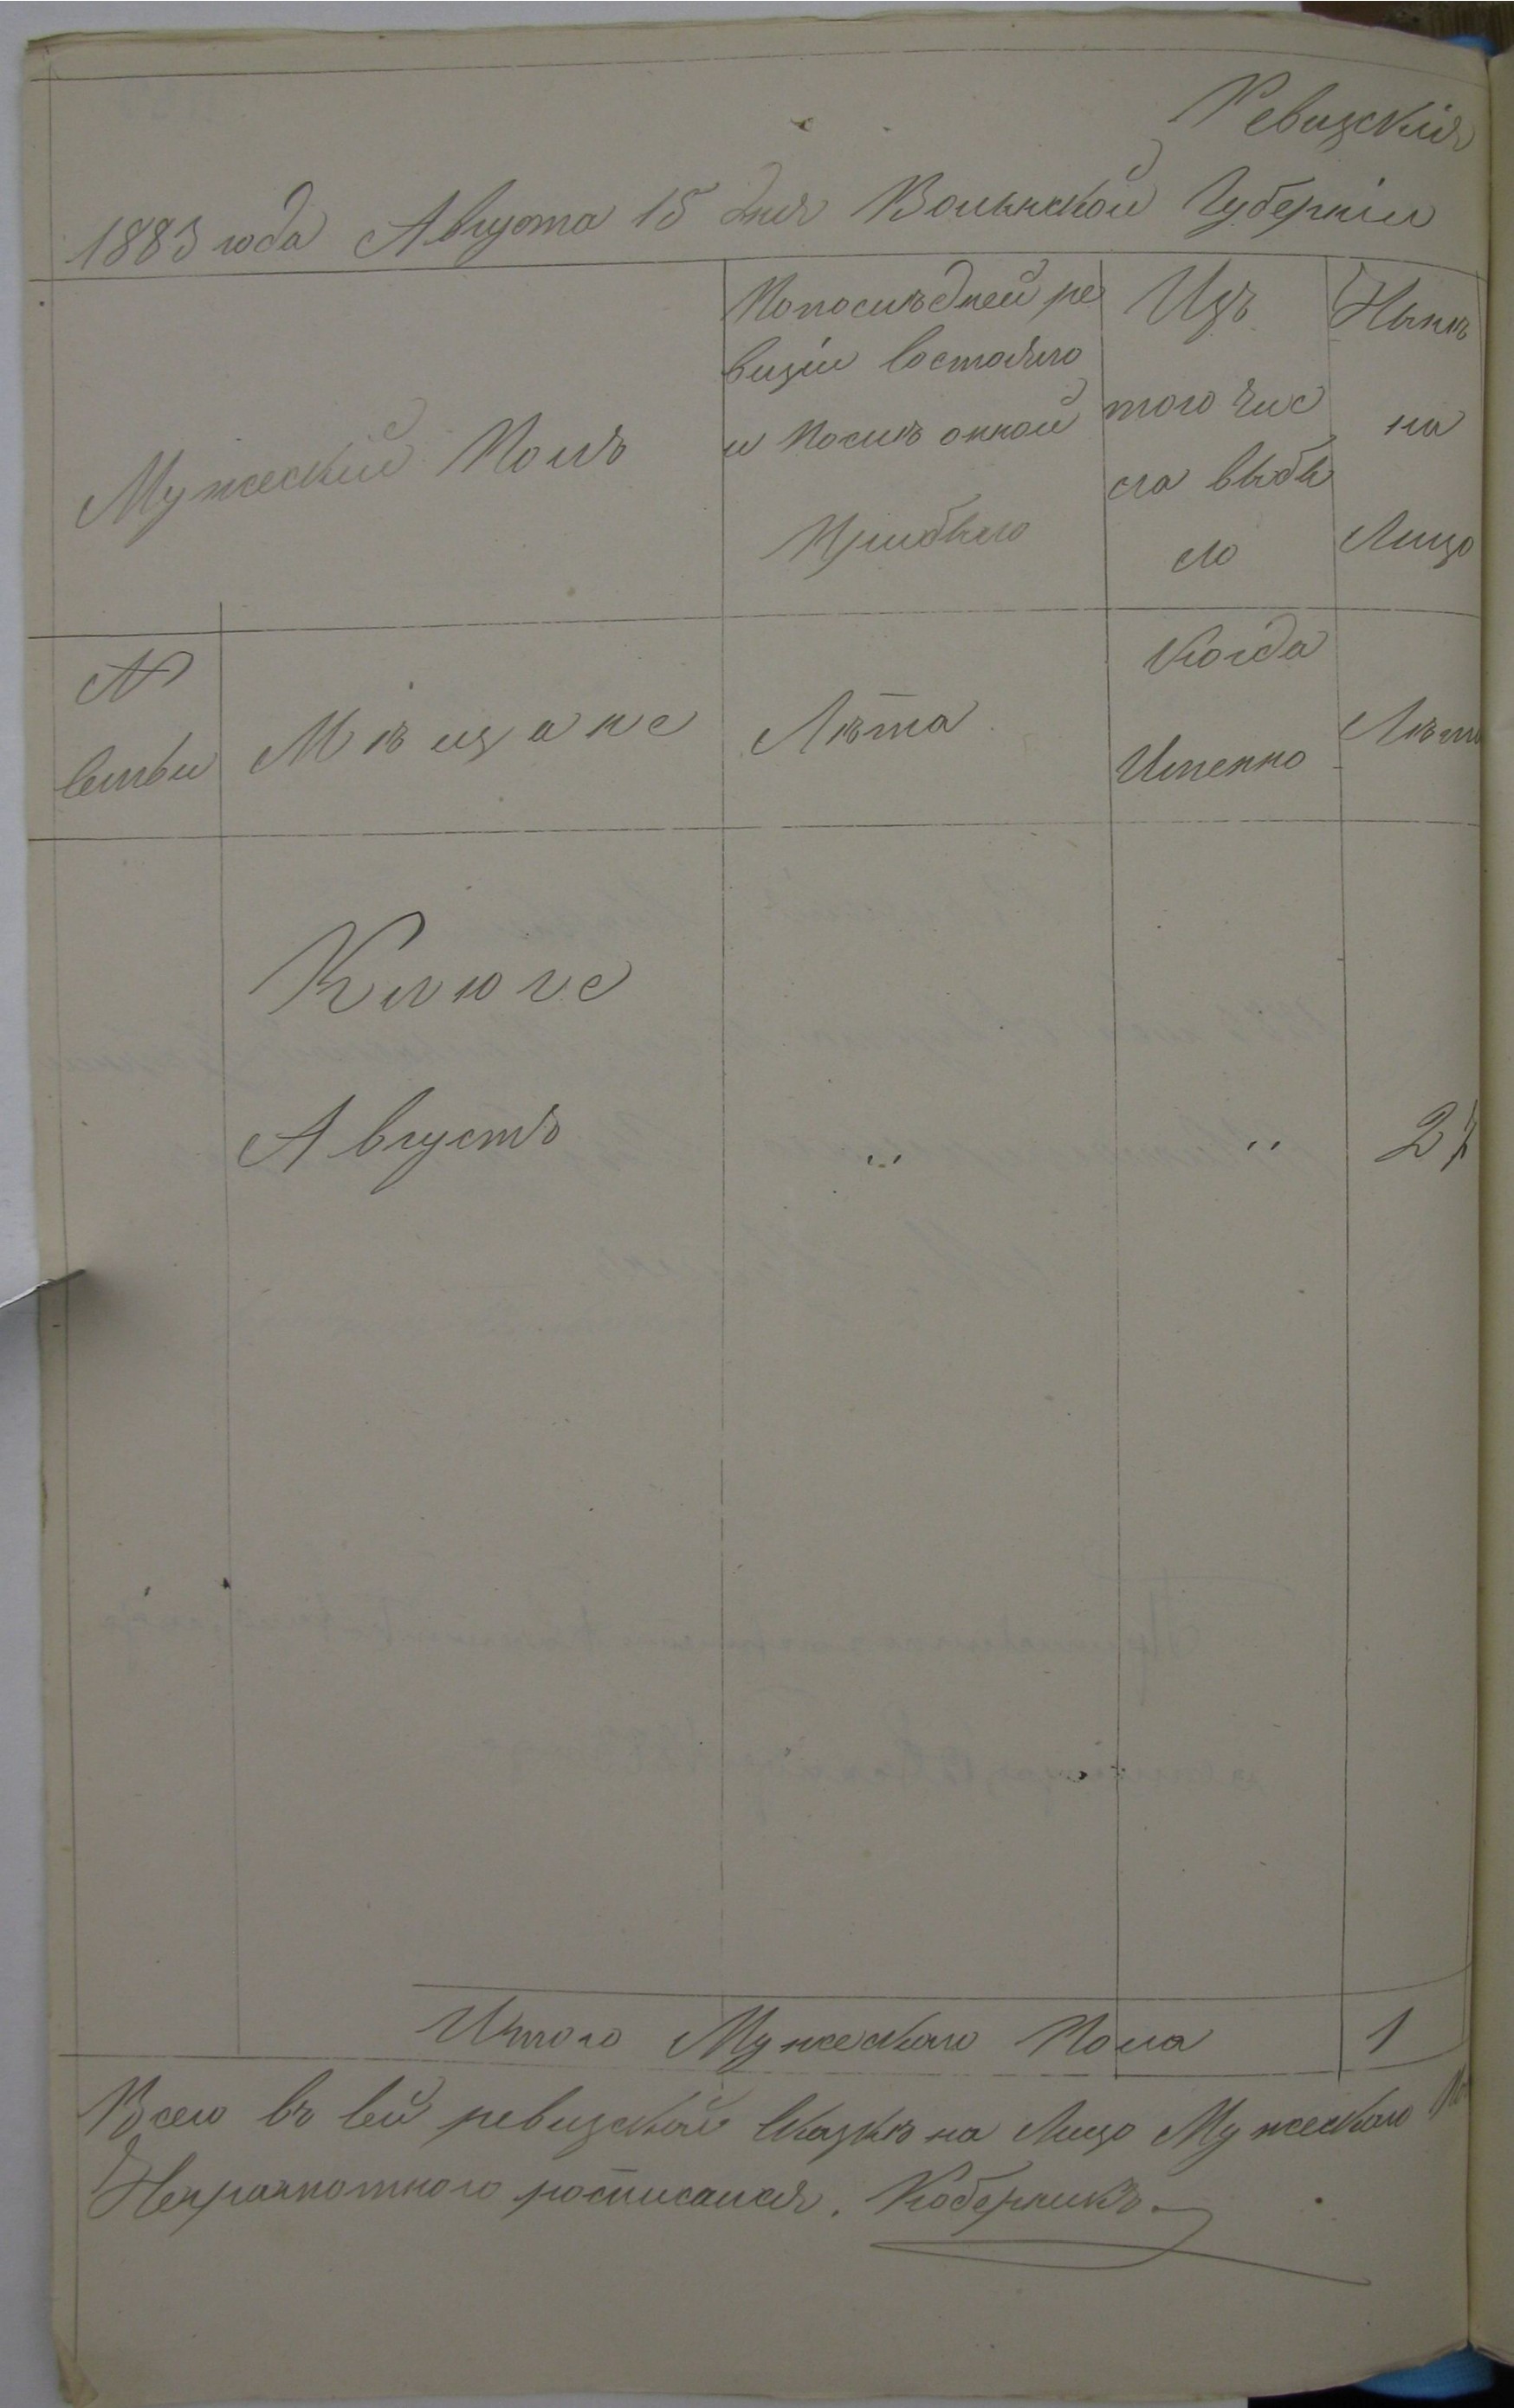 Ревизская
1883 года Августа 15 дня Волынской Губерніи
Мужескій Полъ
Попослѣдней ре
визіи состояло
и послѣ онной
Прибыло
Изъ
того чис
ла выбы
ло
Нынѣ
на
Лицо
№
семьи
Мѣщане
Лѣта
Когда
Именно
Лѣта
Клюге
Августъ
„
„
27
Итого Мужескаго Пола 1
Всего въ сей ревизской сказкѣ на Лицо Мужескаго По
Неграмотного росписался. Коберникъ